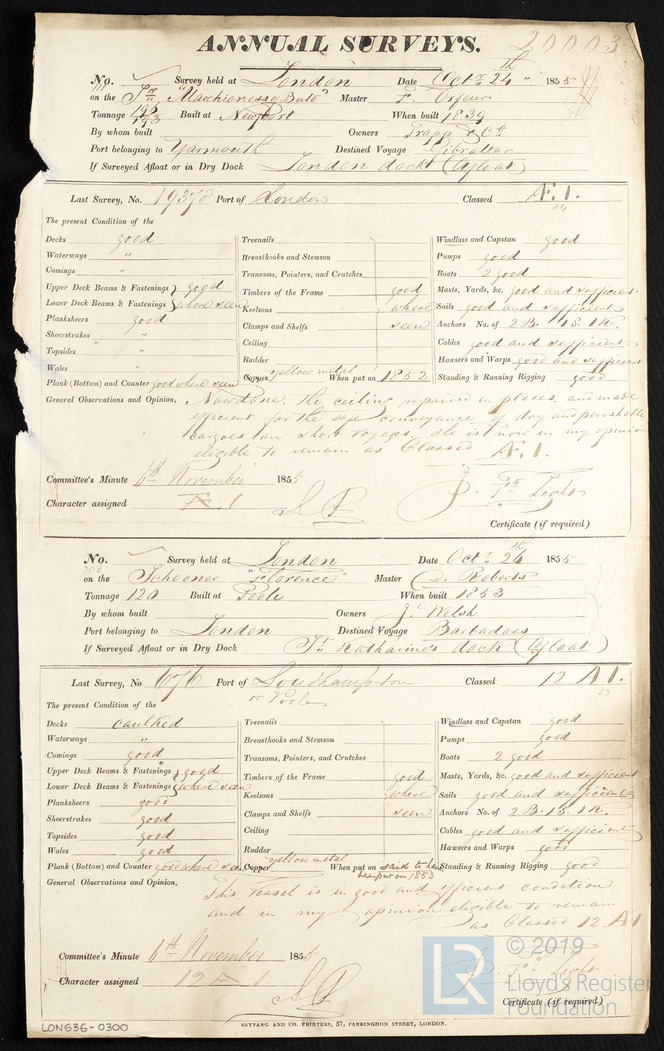 20003
ANNUAL SURVEYS.
No. Survey held at London Date Octr 24th 1855
on the "Marchioness of Bute" Master F. Orfeur
Tonnage 193 Built at Newport When built 1839
By whom built Owners Trapp & Co
Port belonging to Yarmouth Destined Voyage Gibraltar
If Surveyed Afloat or in Dry Dock London docks (Afloat)
Last Survey, No. 19378 Port of London Classed Æ. 1.
The present Condition of the
Decks good
Waterways "
Comings "
Upper Deck Beams & Fastenings } good
Lower Deck Beams & Fastenings } where seen
Planksheers good
Sheerstrakes "
Topsides "
Wales "
Plank (Bottom) and Counter good where seen
Treenails
Breasthooks and Stemson
Transoms, Pointers, and Crutches
Timbers of the Frame good
Keelsons where
Clamps and Shelfs seen
Ceiling
Rudder
Copper yellow metal When put on 1852
Windlass and Capstan good
Pumps good
Boats 2 good
Masts, Yards, &c. good and sufficient
Sails good and sufficient
Anchors No. of 2 B. 1 S. 1 K.
Cables good and sufficient
Hawsers and Warps good and sufficient
Standing & Running Rigging good
General Observations and Opinion, Now done, the ceiling repaired in places, and made
efficient for the safe conveyance of dry and perishable
cargoes on short voyages, she is now in my opinion
eligible to remain as Classed Æ. 1.
Committee's Minute 6th November 1855
Character assigned Æ. 1
Certificate (if required)
No. Survey held at London Date Octr 24th 1855
on the Schooner "Florence" Master D. Roberts
Tonnage 120 Built at Poole When built 1853
By whom built Owners J. Welsh
Port belonging to London Destined Voyage Barbadoes
If Surveyed Afloat or in Dry Dock St Katharine's dock (Afloat)
Last Survey, No. 676 Port of Southampton Classed 12 A 1.
or Poole 53
The present Condition of the
Decks caulked
Waterways "
Comings good
Upper Deck Beams & Fastenings } good
Lower Deck Beams & Fastenings } where seen
Planksheers good
Sheerstrakes good
Topsides good
Wales good
Plank (Bottom) and Counter good where seen
Treenails
Breasthooks and Stemson
Transoms, Pointers, and Crutches
Timbers of the Frame good
Keelsons where
Clamps and Shelfs seen
Ceiling
Rudder
Copper yellow metal When put on said to have
been put on 1853
Windlass and Capstan good
Pumps good
Boats 2 good
Masts, Yards, &c. good and sufficient
Sails good and sufficient
Anchors No. of 2 B. 1 S. 1 K.
Cables good and sufficient
Hawsers and Warps good
Standing & Running Rigging good
General Observations and Opinion, This Vessel is in good and efficient condition
and in my opinion eligible to remain
as Classed 12 A 1
Committee's Minute 6th November 1855
Character assigned 12 A 1
Certificate (if required)
LR © 2019
Lloyd's Register
Foundation
LON636-0300
SEYFANG AND CO. PRINTERS, 57, FARRINGDON STREET, LONDON.